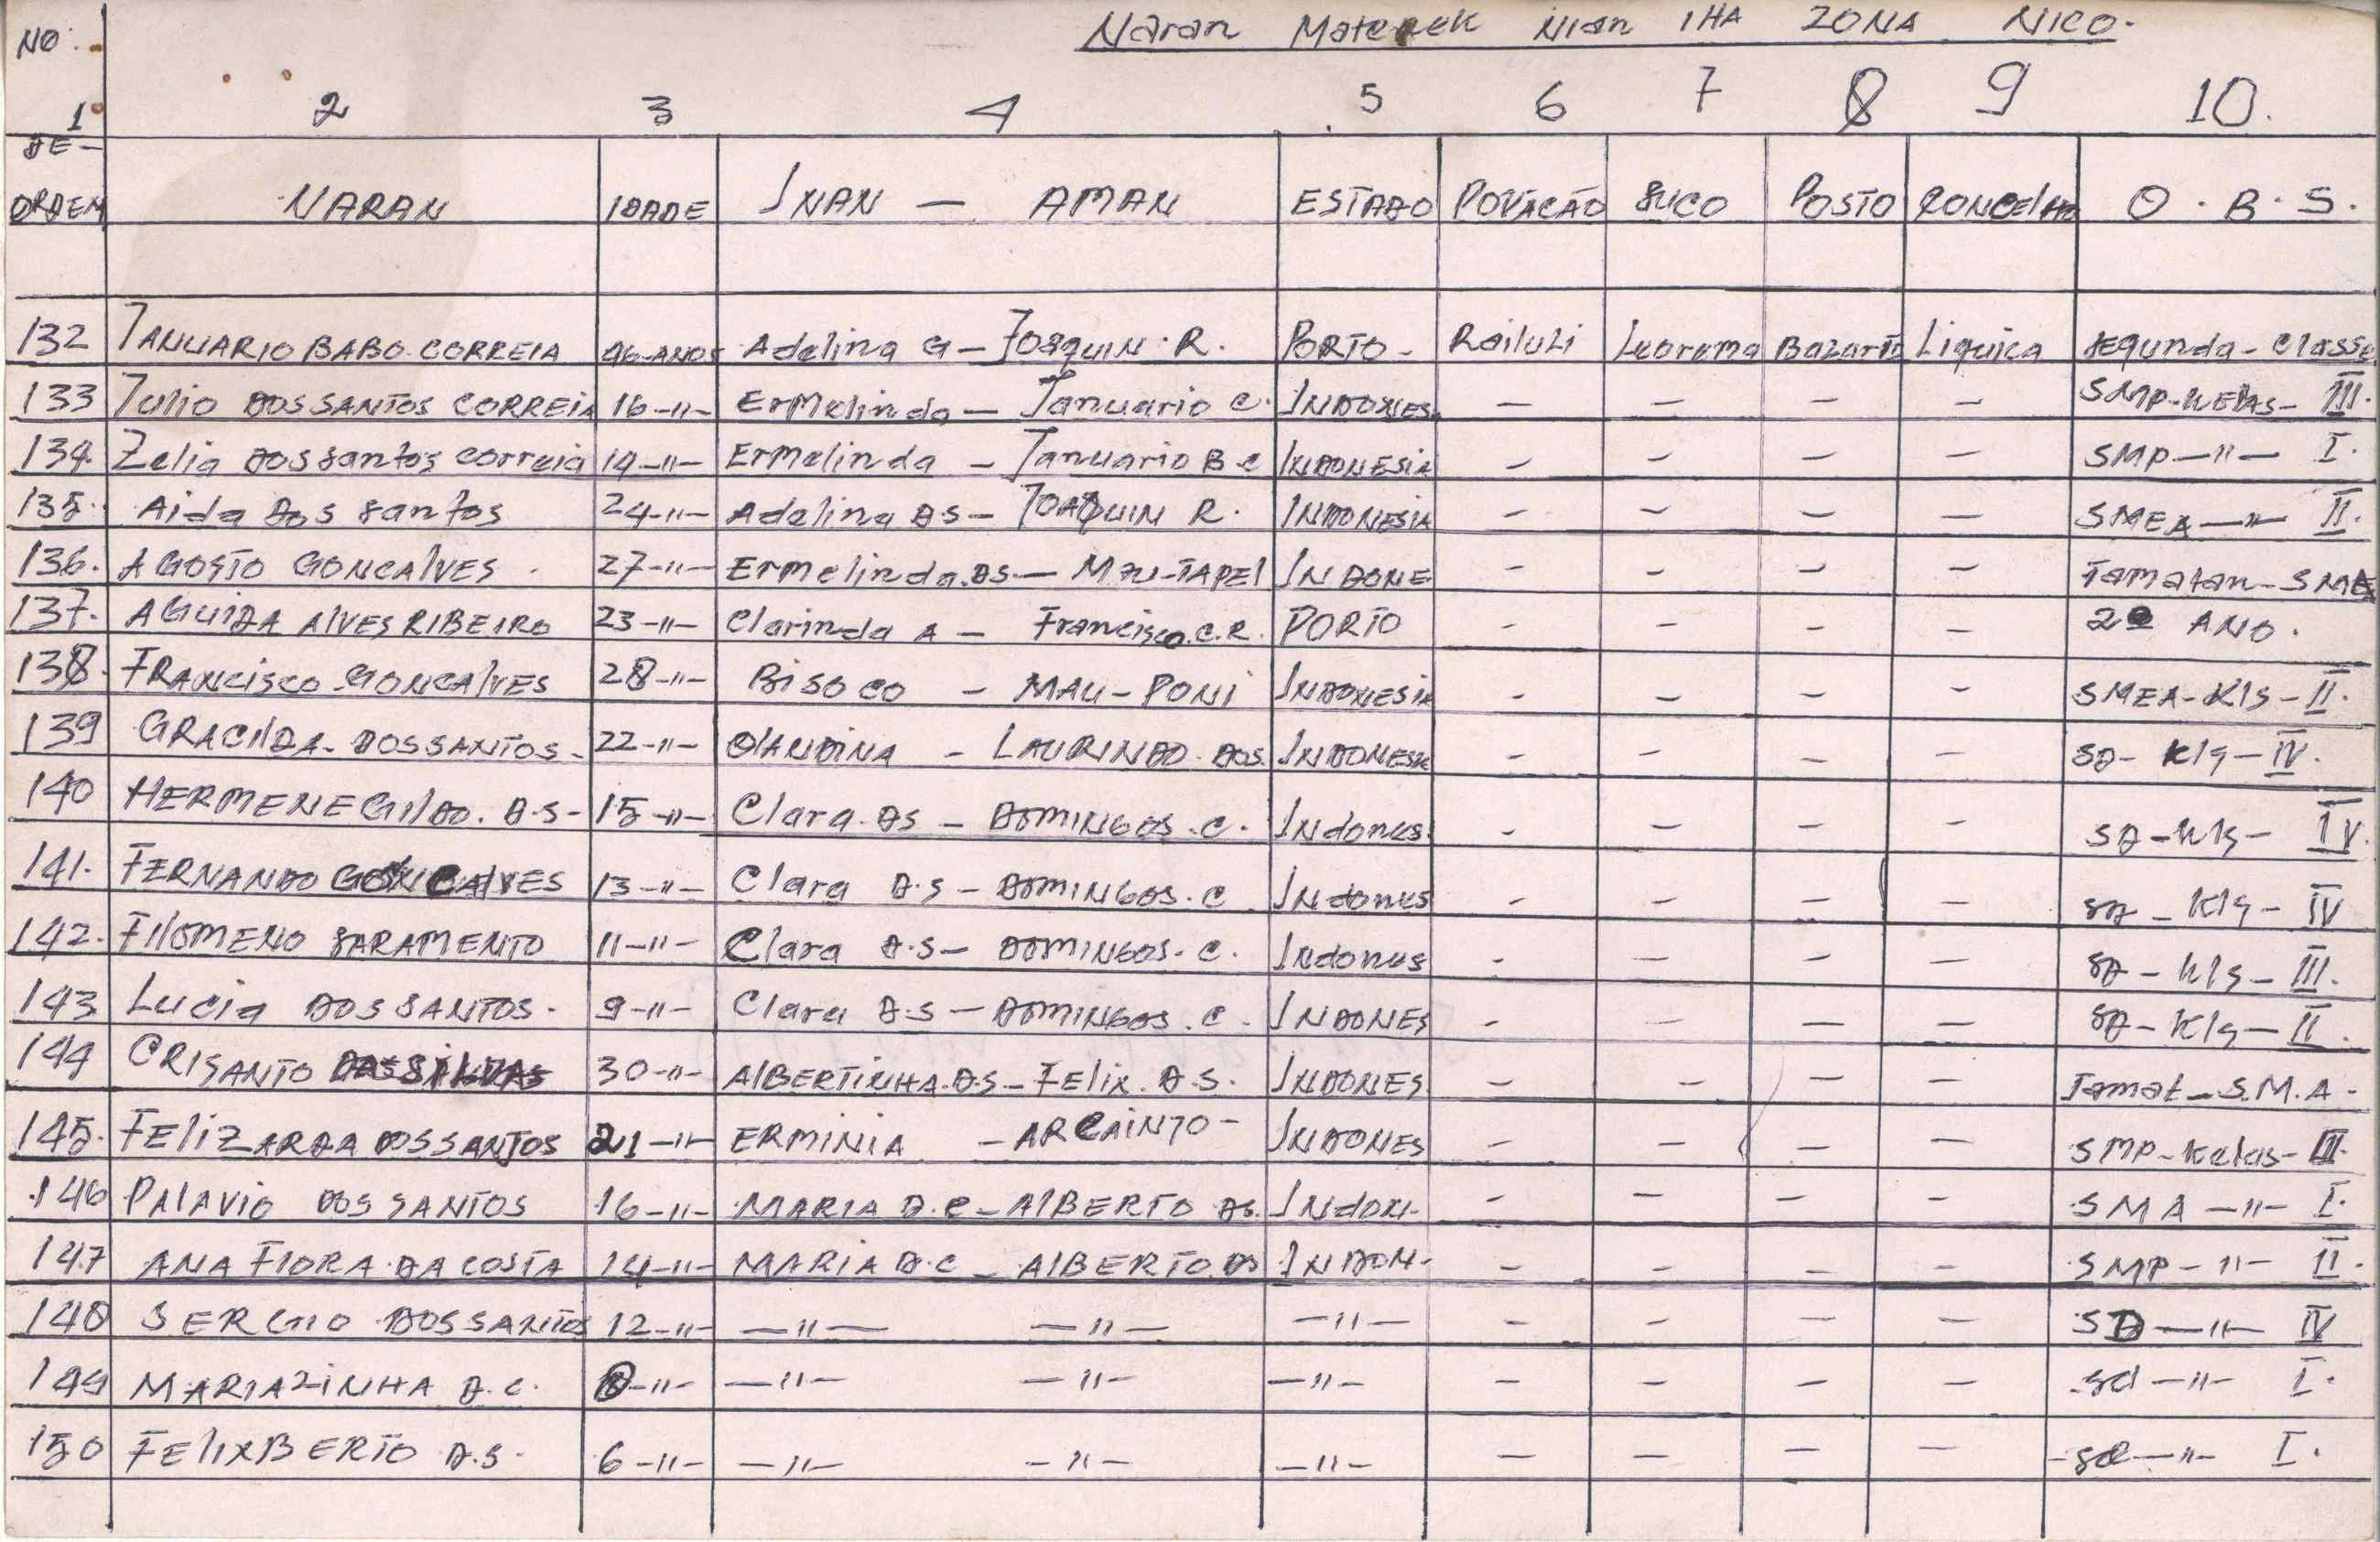 NO. Naran Matenek Nian IHA ZONA NICO.
1 2 3 4 5 6 7 8 9 10.
DE-
ORDEM NARAN IDADE INAN - AMAN ESTADO POVACÃO SUCO POSTO CONCELHO O.B.S.
132 JANUARIO BABO CORREIA 46-ANOS Adelina G - JOAQUIN R. PORTO - Railuli Leorema Liquica segunda - classe
133 Julio DOS SANTOS CORREIA 16-11- ErMelinda - Januario C. INDONES. - - - - SMP-KELAS- III.
134. Zelia DOS santos correia 14-11- ErMelinda - Januario B C INDONESIA - - - - SMP-11- I.
135. Aida DOS santos 24-11- Adelina DS - JOAQUIN R. INDONESIA - - - - SMEA-11- II.
136. AGOSTO GONCALVES. 27-11- Ermelinda.DS.- MAU-TAPEL INDONE - - - - Tamatan-
137. AGUIDA ALVES RIBEIRO 23-11- Clarinda A - Francisco.C.R. PORTO - - - - 2º ANO.
138. FRANCISCO GONCALVES 28-11- BISOCO - MAU-PONI INDONESIA - - - - SMEA-Kls-II.
139 GRACILDA-DOS SANTOS- 22-11- OLANDINA - LAURINDO DOS. INDONESIA - - - - SD- Kls-IV.
140 HERMENEGILDO. D.S- 15-11- Clara DS - DOMINGOS.C. Indones. - - - - SD-Kls- IV.
141. FERNANDO GONCALVES 13-11- Clara D.S - DOMINGOS.C Indones - - - - SD - Kls- IV
142. FILOMENO SARAMENTO 11-11- Clara D.S- DOMINGOS. C. Indones - - - - SD - Kls- III.
143 Lucia DOS SANTOS. 9-11- Clara D.S - DOMINGOS.C. INDONES - - - - SD-Kls-II.
144 CRISANTO 30-11- ALBERTINHA.D.S-FELIX.D.S. INDONES - - - - Tamat-S.M.A-
145. FELIZARDA DOS SANTOS 21-11- ERMINIA - ARCAINJO- INDONES - - - - SMP-Kelas-
146 PALAVIO DOS SANTOS 16-11- MARIA D.C-ALBERTO DS. INDON. - - - - SMA-11- I.
147 ANA FLORA DA COSTA 14-11- MARIA D.C - ALBERTO DS INDON- - - - - SMP-11- II.
148 SERGIO DOS SANTOS 12-11- -11- -11- -11- - - - - SD-11- IV
149 MARIAZINHA D.C. 8-11- -11- -11- -11- - - - - sd-11- I.
150 FELIXBERTO D.S. 6-11- -11- -11- -11- - - - - sd-11- I.